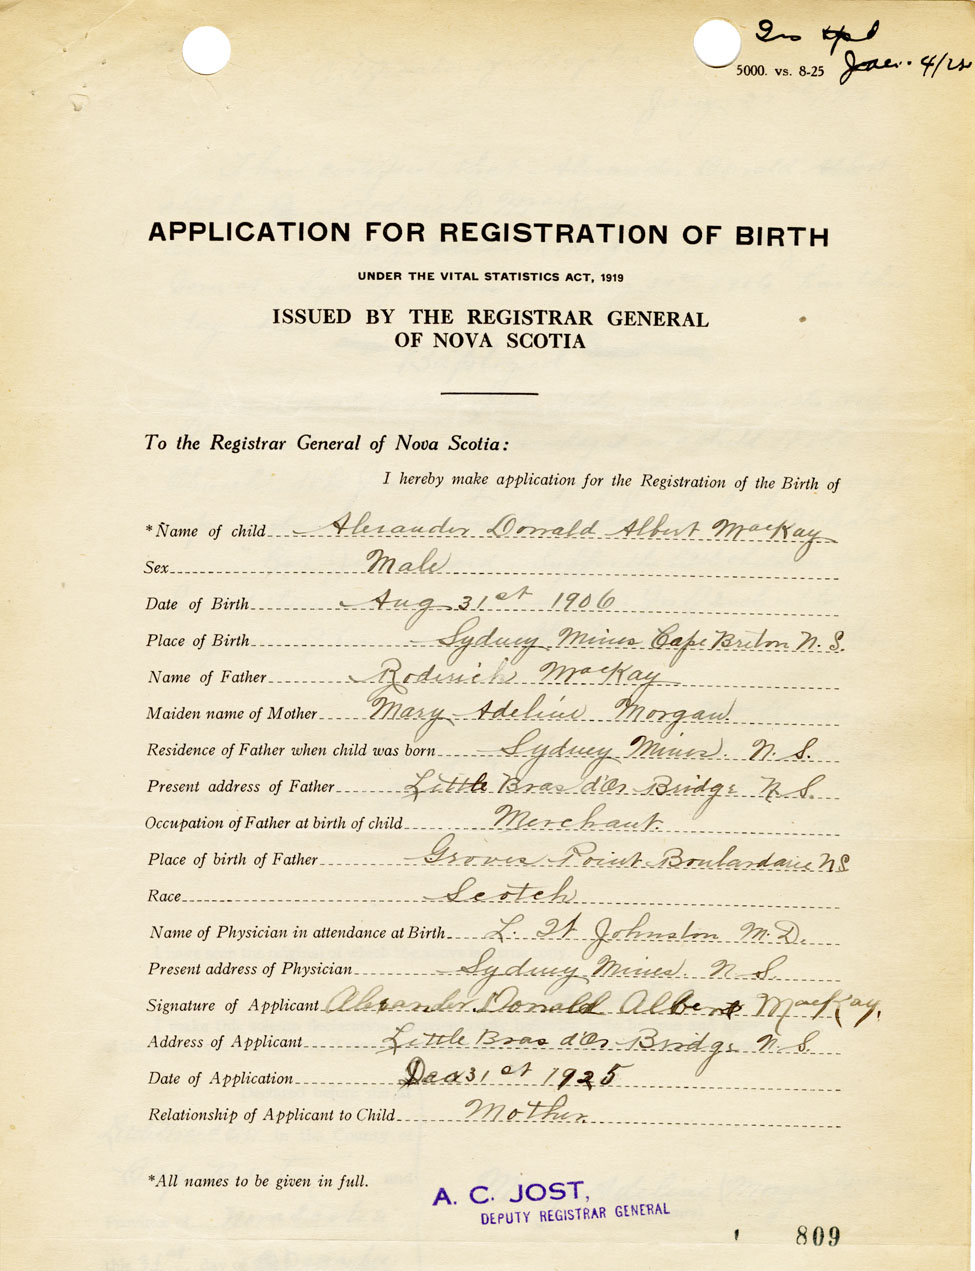 5000. vs. 8-25
APPLICATION FOR REGISTRATION OF BIRTH
UNDER THE VITAL STATISTICS ACT, 1919
ISSUED BY THE REGISTRAR GENERAL
OF NOVA SCOTIA
To the Registrar General of Nova Scotia:
I hereby make application for the Registration of the Birth of
*Name of child Alexander Donald Albert MacKay
Sex Male
Date of Birth Aug 31st 1906
Place of Birth Sydney Mines Cape Breton N. S.
Name of Father Roderick MacKay
Maiden name of Mother Mary Adeline Morgan
Residence of Father when child was born Sydney Mines. N. S.
Present address of Father Little Bras d'Or Bridge N. S.
Occupation of Father at birth of child Merchant.
Place of birth of Father Groves Point Boulardarie N S
Race Scotch
Name of Physician in attendance at Birth L. W Johnston M. D.
Present address of Physician Sydney Mines. N. S.
Signature of Applicant Alexander Donald Albert MacKay.
Address of Applicant Little Bras d'Or Bridge N. S.
Date of Application 31st 1925
Relationship of Applicant to Child Mother.
*All names to be given in full.
A. C. JOST,
DEPUTY REGISTRAR GENERAL
809